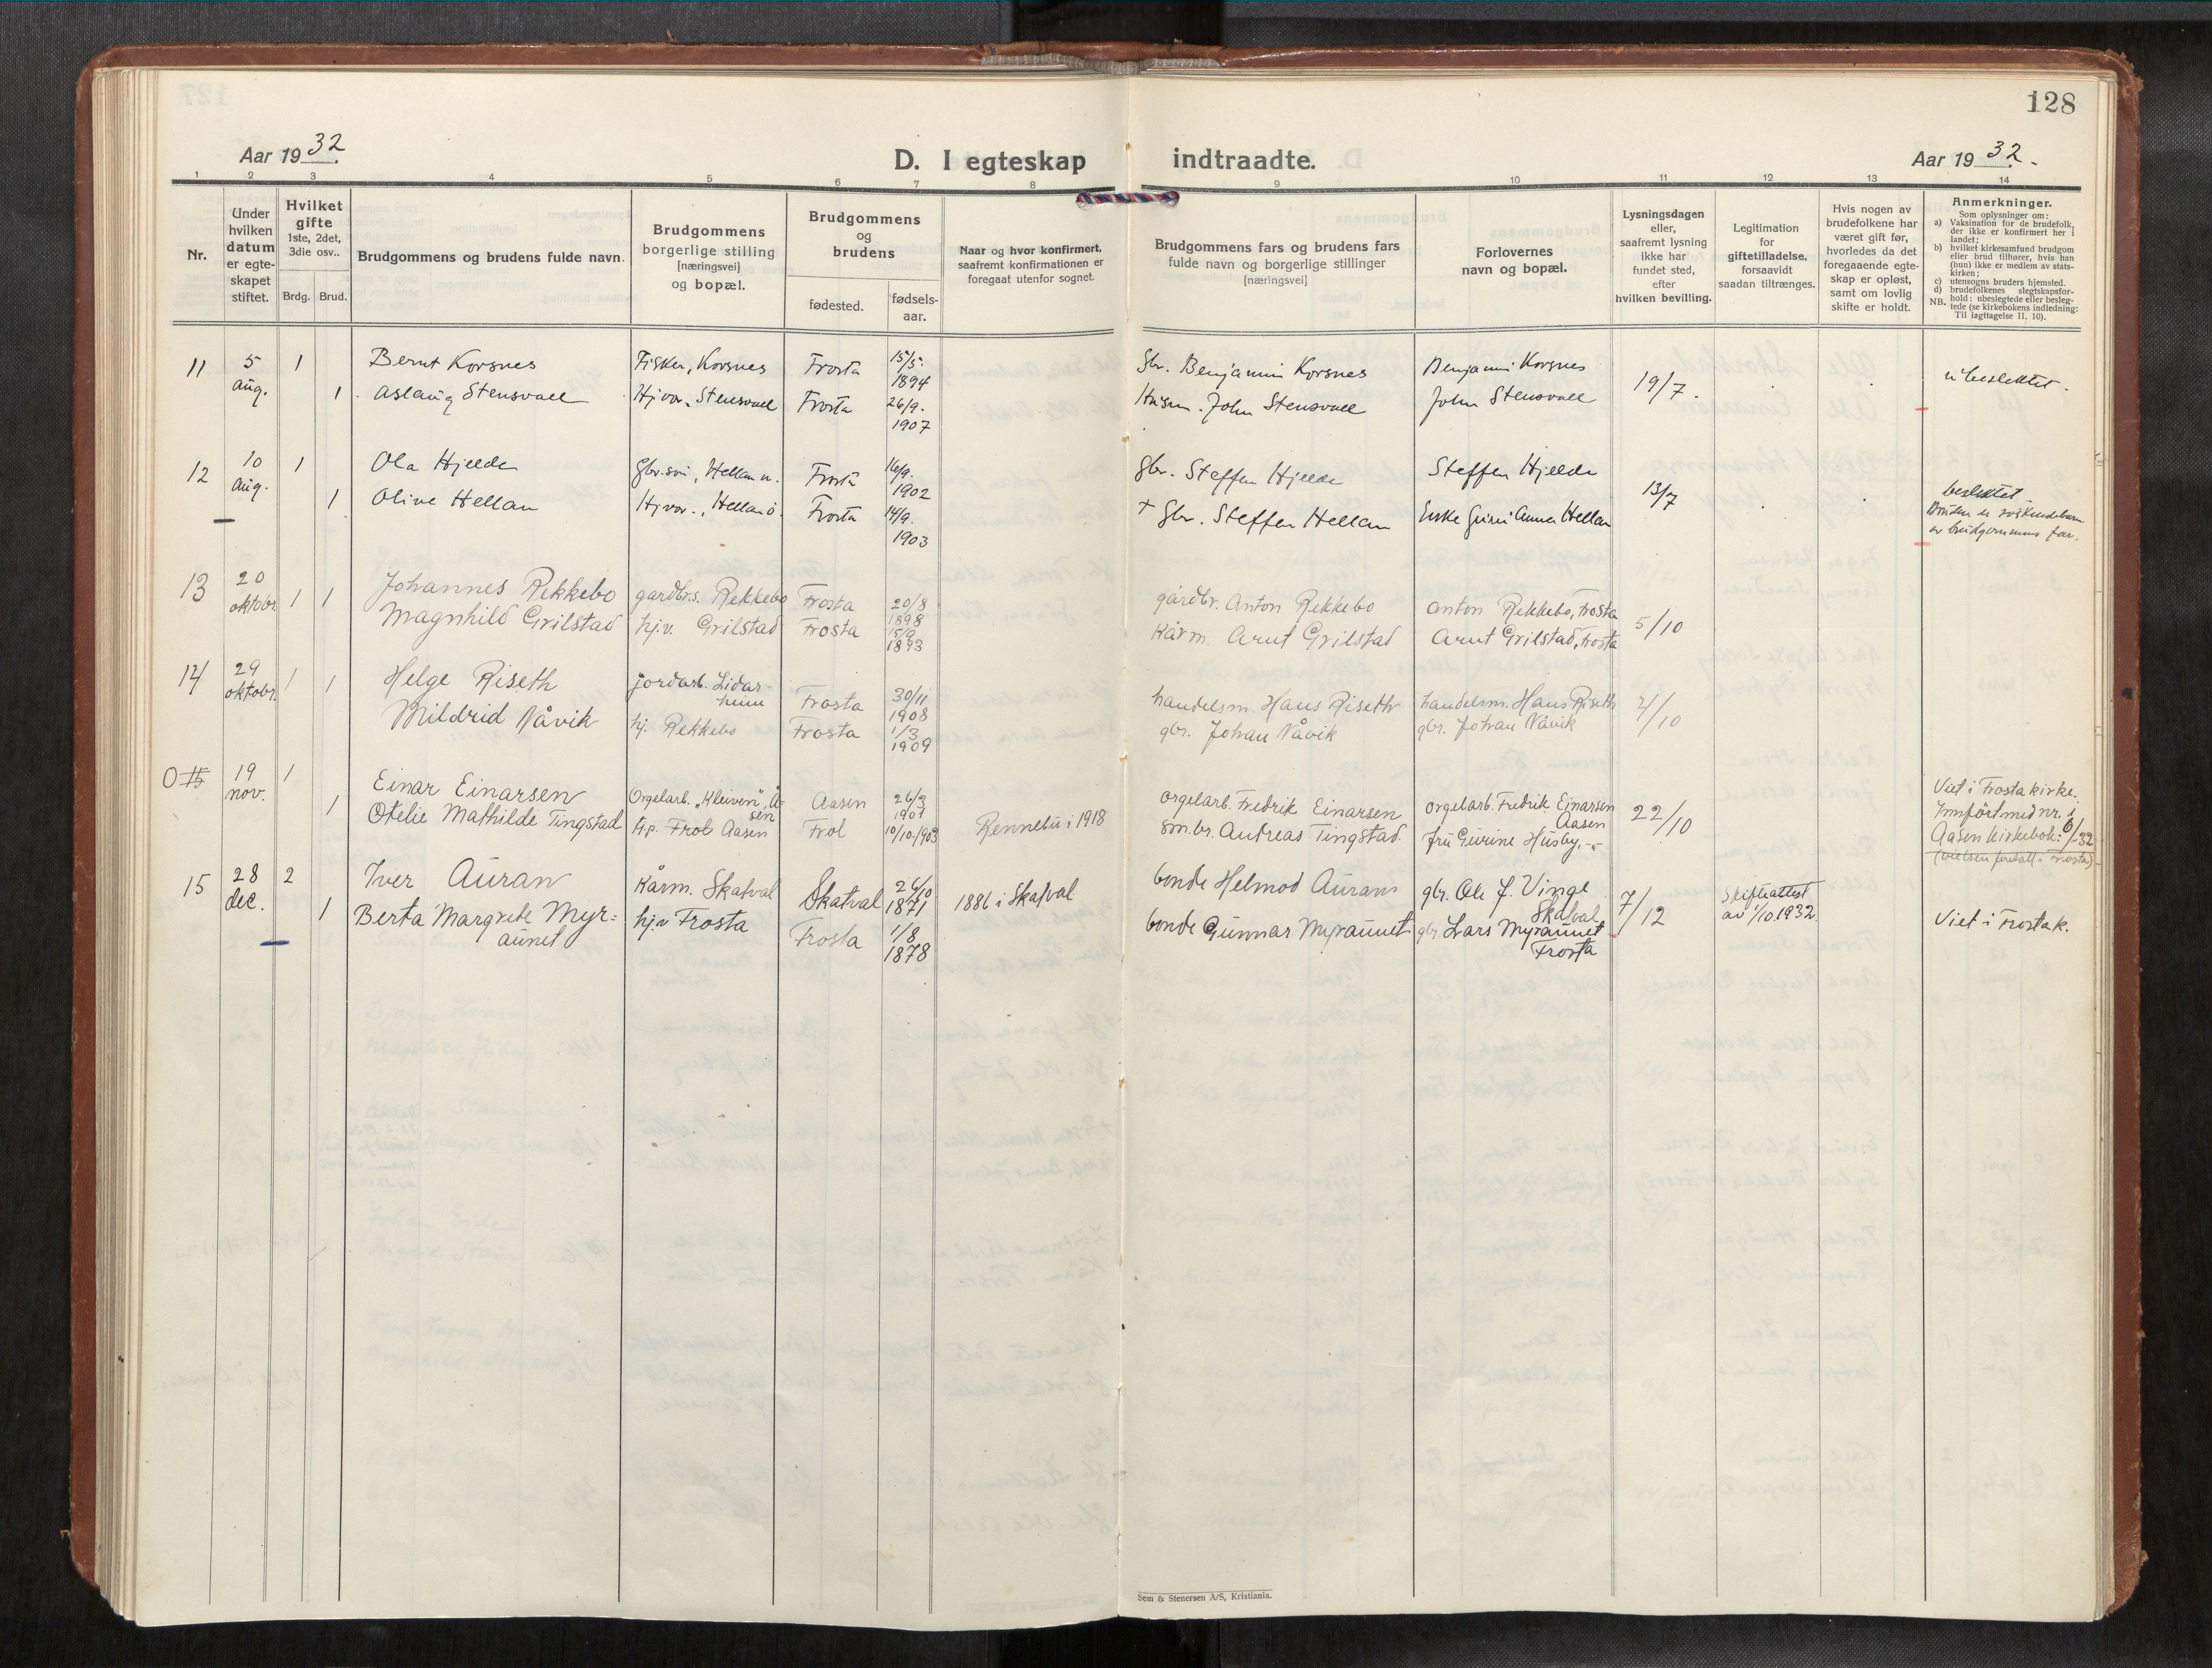 128
Aar 1932.
D. I egteskap indtraadte.
Aar 1932.
1 2 3 4 5 6 7 8 9 10 11 12 13 14
Nr.
Under hvilken datum er egte-skapet stiftet.
Hvilket gifte 1ste, 2det, 3die osv..
Brdg. Brud.
Brudgommens og brudens fulde navn.
Brudgommens borgerlige stilling [næringsvei] og bopæl.
Brudgommens og brudens
fødested.
fødsels-aar.
Naar og hvor konfirmert, saafremt konfirmationen er foregaat utenfor sognet.
Brudgommens fars og brudens fars fulde navn og borgerlige stillinger [næringsvei]
Forlovernes navn og bopæl.
Lysningsdagen eller, saafremt lysning ikke har fundet sted, efter hvilken bevilling.
Legitimation for giftetilladelse, forsaavidt saadan tiltrænges.
Hvis nogen av brudefolkene har været gift før, hvorledes da det foregaaende egte-skap er opløst, samt om lovlig skifte er holdt.
Anmerkninger.
Som oplysninger om:
a) Vaksination for de brudefolk, der ikke er konfirmert her i landet;
b) hvilket kirkesamfund brudgom eller brud tilhører, hvis han (hun) ikke er medlem av stats-kirken;
c) utensogns bruders hjemsted.
d) brudefolkenes slegtskapsfor-hold: ubeslegtede eller besleg-tede (se kirkebokens indledning:
NB. Til iagttagelse II, 10).
11 5 aug. 1 Bernt Korsnes Fisker, Korsnes Frosta 15/5. 1894 Gbr. Benjamin Korsnes Benjamin Korsnes 19/7. ubeslektet.
1 Aslaug Stensvall Hjvor. Stensvall Frosta 26/9. 1907 Husm. John Stensvall John Stensvall
12 10 aug. 1 Ola Hjelde Gbr.søn, Hellan n. Frosta 16/9. 1902 Gbr. Steffen Hjelde Steffen Hjelde 13/7 beslektet
1 Olive Hellan Hjvor., Hellan ö. Frosta 14/9. 1903 + Gbr. Steffen Hellan Enke Guri Anna Hellan Bruden er søskendebarn av brudgommens far.
13 20 oktobr. 1 1 Johannes Rekkebo gardbr.s. Rekkebo Frosta 20/8 1898 gårdbr. Anton Rekkebo Anton Rekkebo, Frosta 5/10
Magnhild Grilstad hj.v. Grilstad Frosta 15/9 1893 Kårm. Arnt Grilstad Arnt Grilstad, Frosta
14 29 oktobr. 1 1 Helge Riseth jordarb. Lidarheim Frosta 30/11 1908 handelsm. Hans Riseth handelsm. Hans Riseth 4/10
Mildrid Våvik hj. Rekkebo Frosta 1/3 1909 gbr. Johan Våvik gbr. Johan Våvik
0 15 19 nov. 1 Einar Einarsen Orgelarb. „Kleiven", Åsen Aasen 26/3 1901 orgelarb. Fredrik Einarsen orgelarb. Fredrik Einarsen Aasen 22/10 Viet i Frosta kirke.
1 Otelie Mathilde Tingstad tjp. Frol Aasen Frol 10/10-1903 Rennebu i 1918 sm.br. Andreas Tingstad fru Gurine Husby, -"- Innført med nr. i Aasen kirkebok: 6/-32
(vielsen foretatt i Frosta)
15 28 dec. 2 Iver Auran Kårm. Skatval Skatval 26/10 1871 1886 i Skatval bonde Helmod Auran gbr. Ole J. Vinge Skatval 7/12 Skifteattest av 1/10 1932
1 Berta Margrete Myr=aunet hj.v Frosta Frosta 1/8 1878 bonde Gunnar Myraunet gbr. Lars Myraunet Frosta Viet i Frosta k.
Sem & Stenersen A/S, Kristiania.